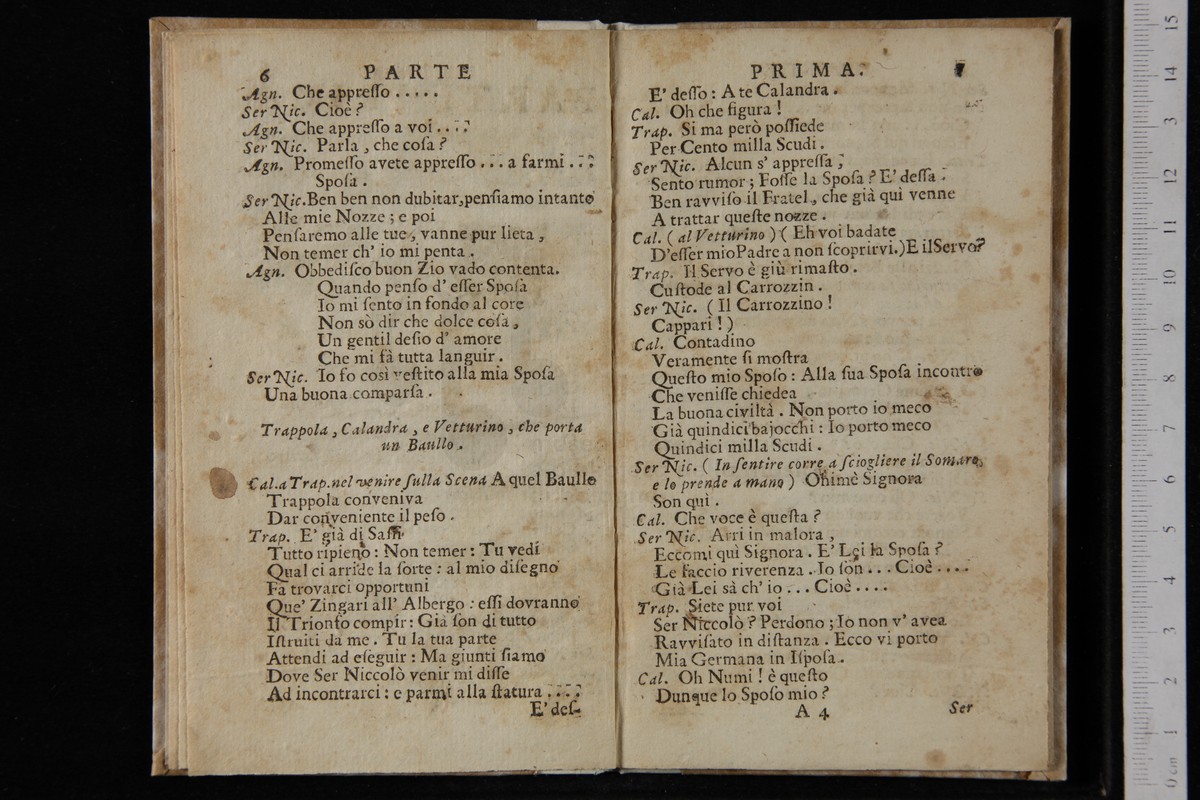 6 PARTE
Agn. Che appreſſo . . . . .
Ser Nic. Cioè ?
Agn. Che appreſſo a voi . . . .
Ser Nic. Parla , che coſa ?
Agn. Promeſſo avete appreſſo . . . a farmi . . .
Spoſa .
Ser Nic. Ben ben non dubitar, penſiamo intanto
Alle mie Nozze ; e poi
Penſaremo alle tue , vanne pur lieta ,
Non temer ch' io mi penta .
Agn. Obbediſco buon Zio vado contenta.
Quando penſo d' eſſer Spoſa
Io mi ſento in fondo al core
Non sò dir che dolce coſa ,
Un gentil deſio d' amore
Che mi fà tutta languir .
Ser Nic. Io fo così veſtito alla mia Spoſa
Una buona comparſa .
Trappola , Calandra , e Vetturino , che porta
un Baullo .
Cal. a Trap. nel venire ſulla Scena A quel Baullo
Trappola conveniva
Dar conveniente il peſo .
Trap. E' già di Saſſi
Tutto ripieno : Non temer : Tu vedi
Qual ci arride la ſorte : al mio diſegno
Fa trovarci opportuni
Que' Zingari all' Albergo : eſſi dovranno
Il Trionfo compir : Già ſon di tutto
Iſtruiti da me . Tu la tua parte
Attendi ad eſeguir : Ma giunti ſiamo
Dove Ser Niccolò venir mi diſſe
Ad incontrarci : e parmi alla ſtatura . . . .
E' deſ-
PRIMA. 7
E' deſſo : A te Calandra .
Cal. Oh che figura !
Trap. Si ma però poſſiede
Per Cento milla Scudi .
Ser Nic. Alcun s' appreſſa ;
Sento rumor ; Foſſe la Spoſa ? E' deſſa .
Ben ravviſo il Fratel , che già quì venne
A trattar queſte nozze .
Cal. ( al Vetturino ) ( Eh voi badate
D'eſſer mio Padre a non ſcoprirvi. ) E il Servo?
Trap. Il Servo è giù rimaſto .
Cuſtode al Carrozzin .
Ser Nic. ( Il Carrozzino !
Cappari ! )
Cal. Contadino
Veramente ſi moſtra
Queſto mio Spoſo : Alla ſua Spoſa incontro
Che veniſſe chiedea
La buona civiltà . Non porto io meco
Già quindici bajocchi : Io porto meco
Quindici milla Scudi .
Ser Nic. ( In ſentire corre a ſciogliere il Somaro,
e lo prende a mano ) Ohimè Signora
Son quì .
Cal. Che voce è queſta ?
Ser Nic. Arri in malora ,
Eccomi quì Signora . E' Lei la Spoſa ?
Le faccio riverenza . Io ſon . . . Cioè . . . .
Già Lei sà ch' io . . . Cioè . . . .
Trap. Siete pur voi
Ser Niccolò ? Perdono ; Io non v' avea
Ravviſato in diſtanza . Ecco vi porto
Mia Germana in Iſpoſa .
Cal. Oh Numi ! è queſto
Dunque lo Spoſo mio ?
A 4 Ser